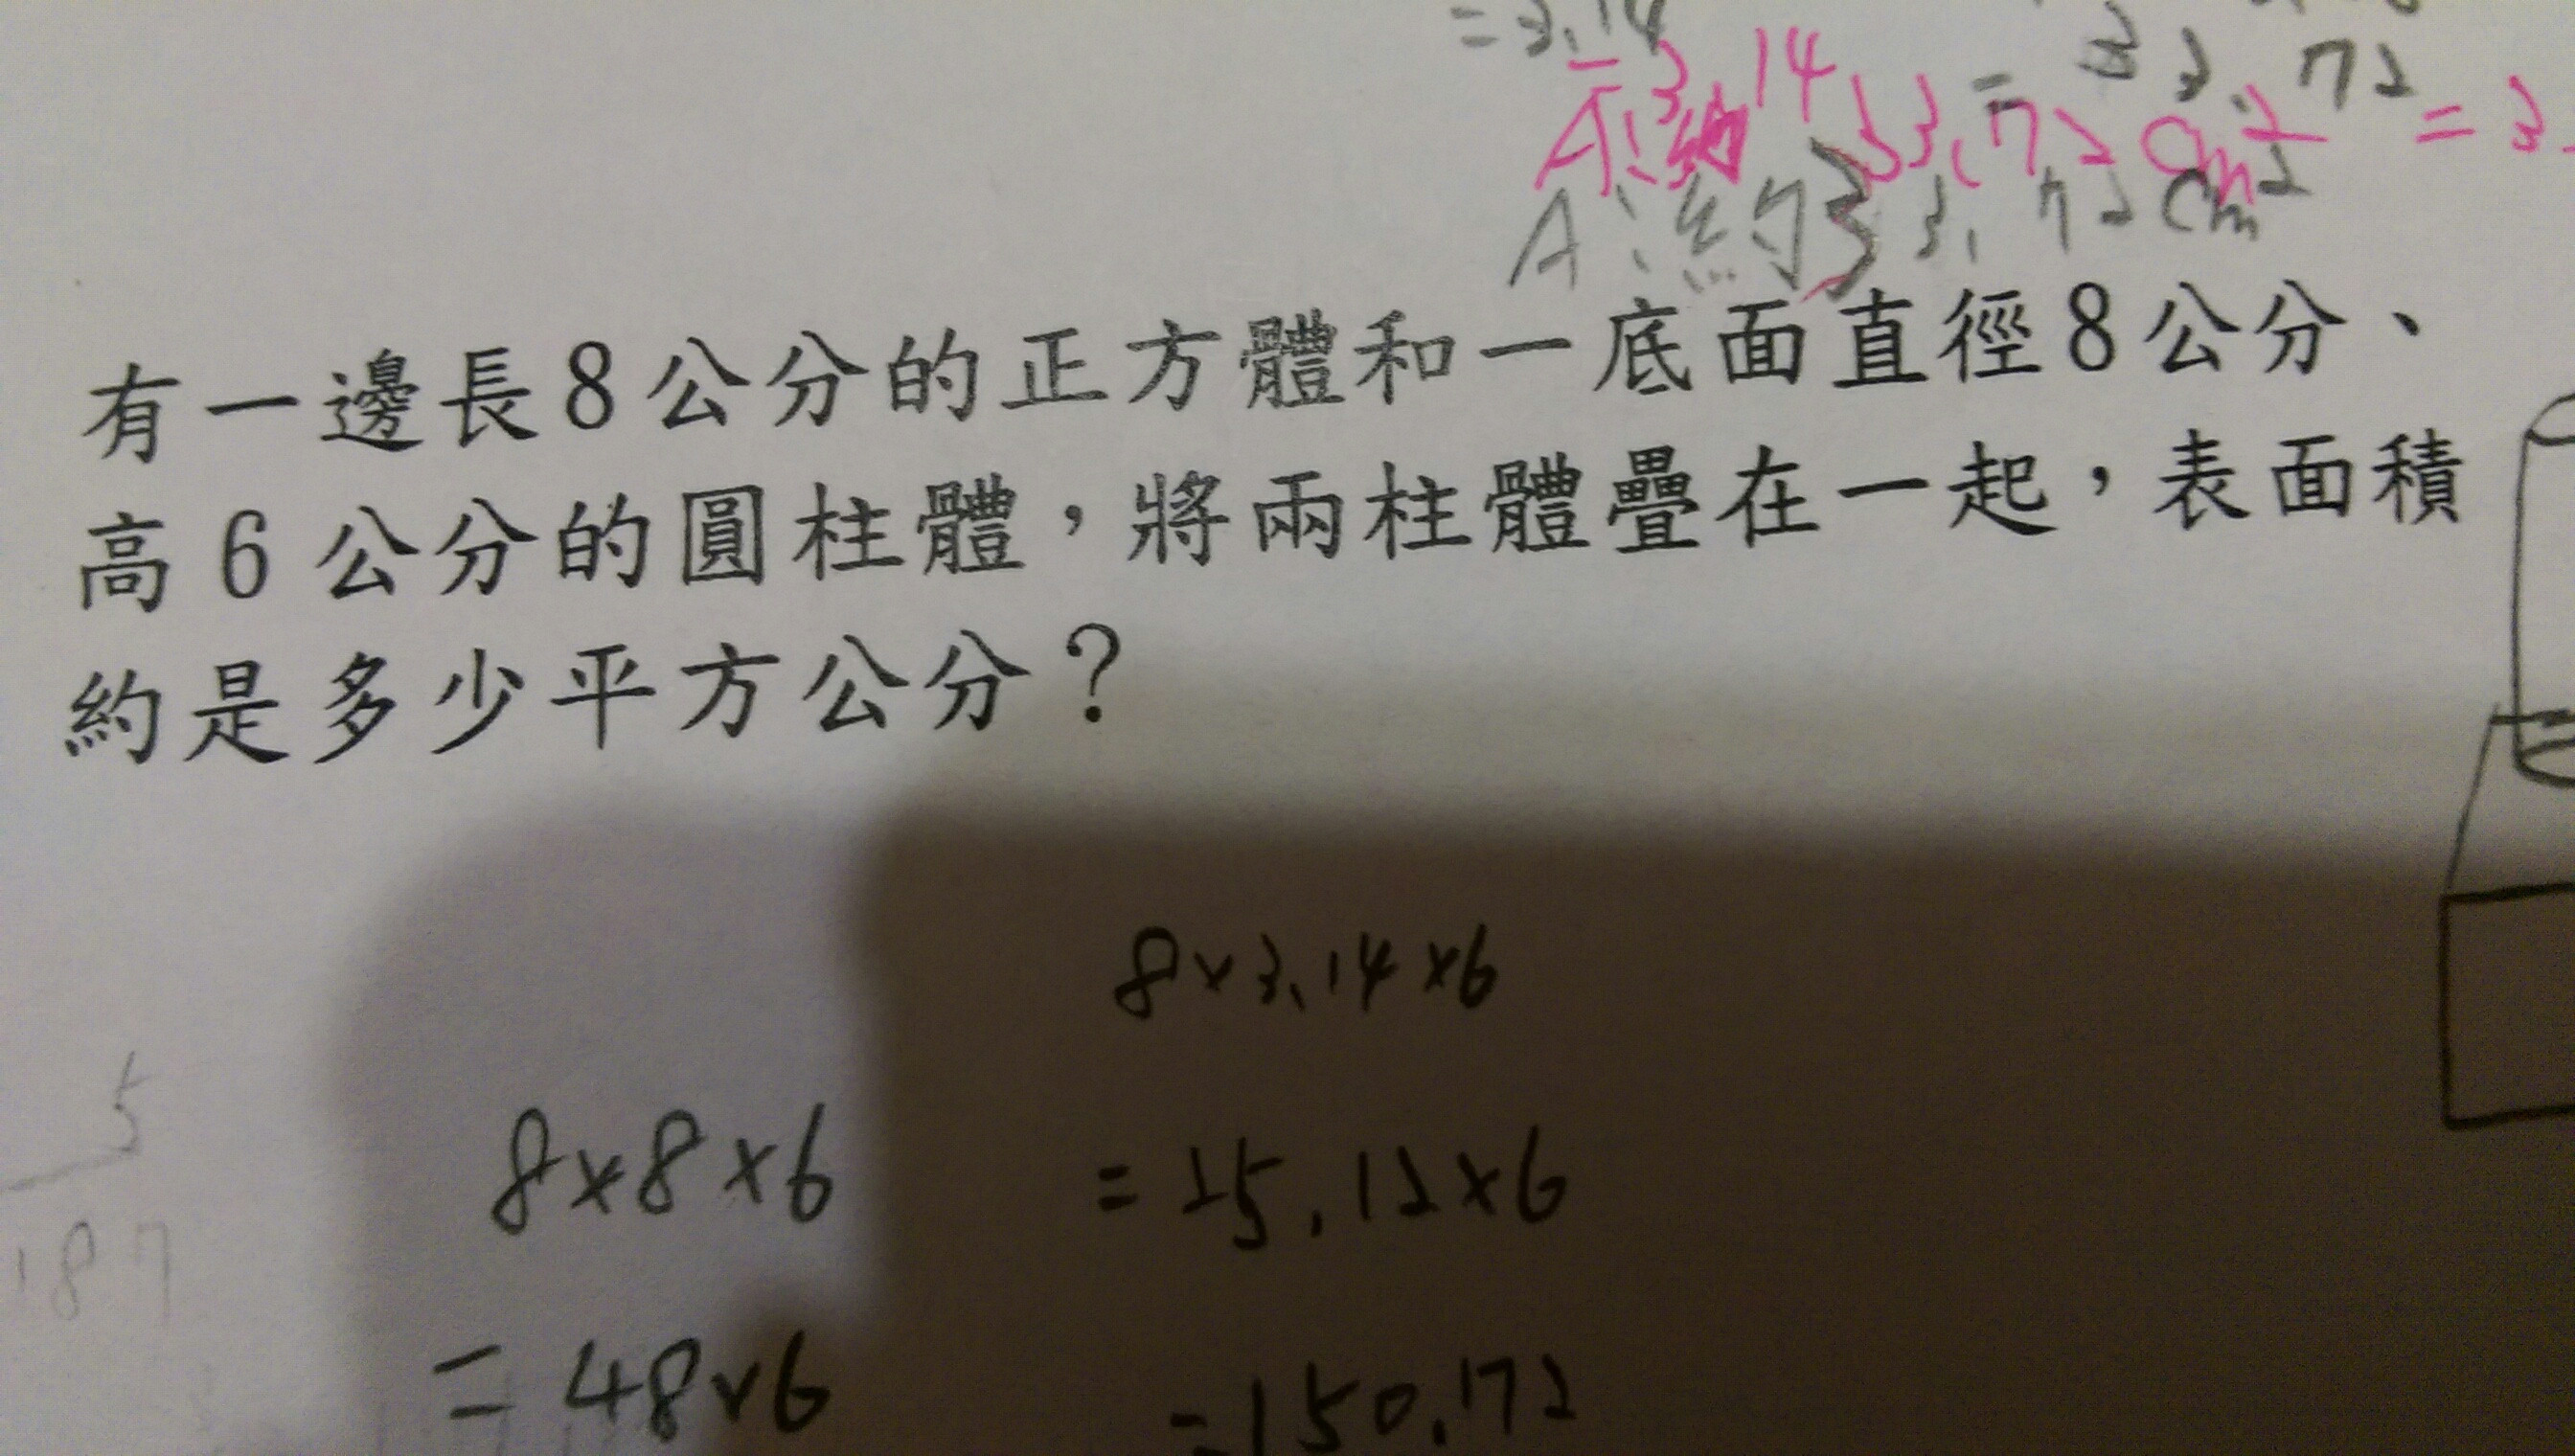 =3.14
=3.14
= 33.72
A:約33.72cm²
A:約33.72cm²
有一邊長8公分的正方體和一底面直徑8公分、
高6公分的圓柱體,將兩柱體疊在一起,表面積
約是多少平方公分?
8×3.14×6
5
8×8×6
=25.12×6
187
=48×6
=150.72